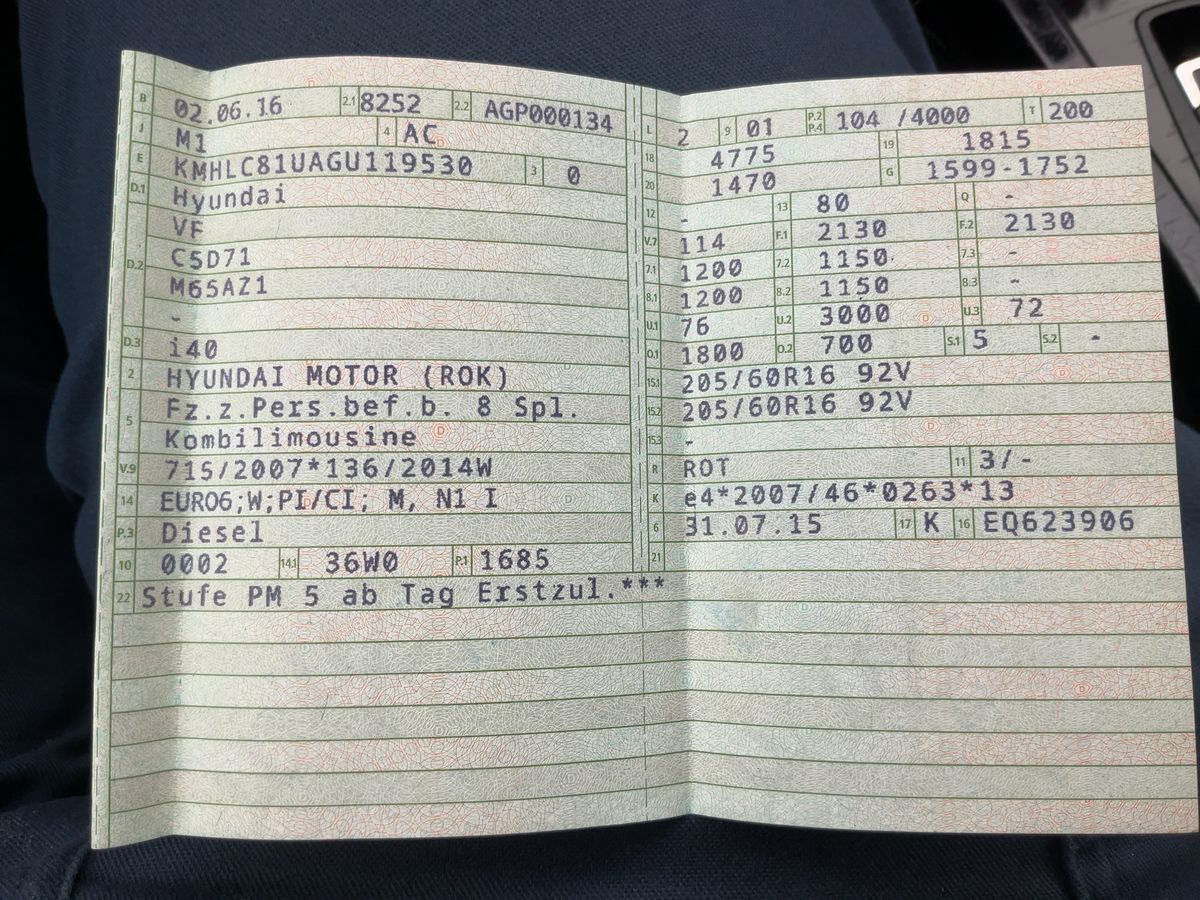 B 02.06.16 2.1 8252 2.2 AGP000134
J M1 4 AC
E KMHLC81UAGU119530 3 0
D.1 Hyundai
VF
D.2 C5D71
M65AZ1
-
D.3 i40
2 HYUNDAI MOTOR (ROK)
5 Fz.z.Pers.bef.b. 8 Spl.
Kombilimousine
V.9 715/2007*136/2014W
14 EURO6;W;PI/CI; M, N1 I
P.3 Diesel
10 0002 14.1 36W0 P.1 1685
22 Stufe PM 5 ab Tag Erstzul.***
L 2 9 01 P.2 P.4 104 /4000 T 200
18 4775 19 1815
20 1470 G 1599-1752
12 - 13 80 Q -
V.7 114 F.1 2130 F.2 2130
7.1 1200 7.2 1150 7.3 -
8.1 1200 8.2 1150 8.3 -
U.1 76 U.2 3000 U.3 72
O.1 1800 O.2 700 S.1 5 S.2 -
15.1 205/60R16 92V
15.2 205/60R16 92V
15.3 -
R ROT 11 3/-
K e4*2007/46*0263*13
6 31.07.15 17 K 16 EQ623906
21